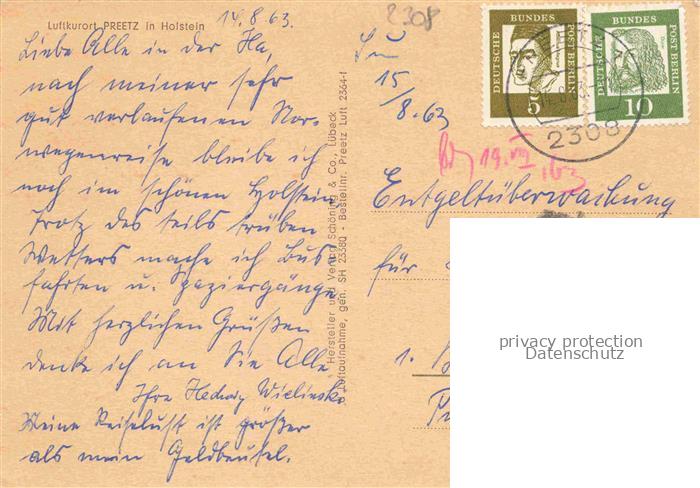 Luftkurort PREETZ in Holstein 14.8.63.
Liebe Alle in der Ha,
nach meiner sehr
gut verlaufenen Nor-
wegenreise bleibe ich
noch im schönen Holstein,
Trotz des teils trüben
Wetters mache ich Bus
fahrten u. Spaziergänge
Mit herzlichen Grüßen
denke ich an Sie Alle
Ihre Hedwig Wielinski
Meine Reiselust ist größer
als mein Geldbeutel.
Hersteller und Verlag Schöning & Co., Lübeck
Luftaufnahme, gen. SH 23380 - Bestellnr. Preetz Luft 2364-f
2308
15/
8.63
DEUTSCHE BUNDES POST BERLIN
5
DEUTSCHE BUNDES POST BERLIN
10
2308
19.VIII.63
Entgeltüberwachung
für
1.
privacy protection
Datenschutz